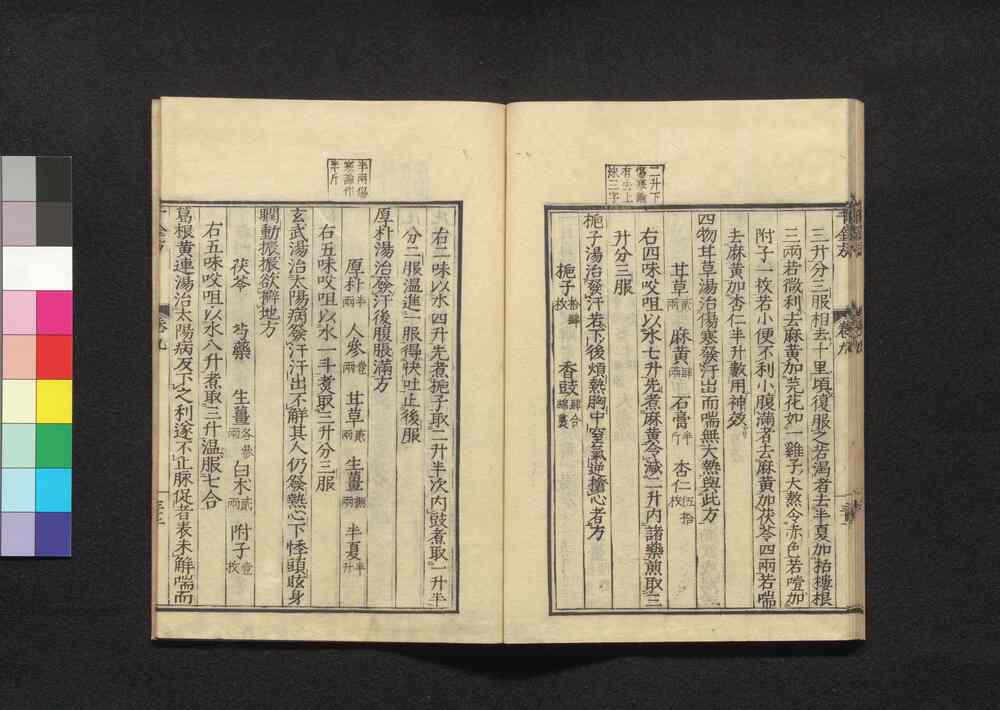 二升下
傷寒論
有去上
沫三字
三升分三服相去十里頃復服之若渴者去半夏加栝樓根
三兩若微利去麻黃加芫花如一雞子大熬令赤色若噎加
附子一枚若小便不利小腹滿者去麻黃加茯苓四兩若喘
去麻黃加杏仁半升數用神效
四物甘草湯治傷寒發汗出而喘無大熱與此方
甘草貳兩 麻黃肆兩 石膏半斤 杏仁伍拾枚
右四味㕮咀以水七升先煮麻黃令減二升內諸藥煎取三
升分三服
梔子湯治發汗若下後煩熱胸中窒氣逆搶心者方
梔子拾肆枚 香豉肆合綿裹
半兩傷
寒論作
半斤
右二味以水四升先煮梔子取二升半次內豉煮取一升半
分二服溫進一服得快吐止後服
厚朴湯治發汗後腹脹滿方
厚朴半兩 人參壹兩 甘草貳兩 生薑捌兩 半夏半升
右五味㕮咀以水一斗煮取三升分三服
玄武湯治太陽病發汗汗出不解其人仍發熱心下悸頭眩身
瞤動振振欲擗地方
茯苓 芍藥 生薑各參兩 白朮貳兩 附子壹枚
右五味㕮咀以水八升煮取三升溫服七合
葛根黃連湯治太陽病反下之利遂不止脉促者表未解喘而
千金方 卷九